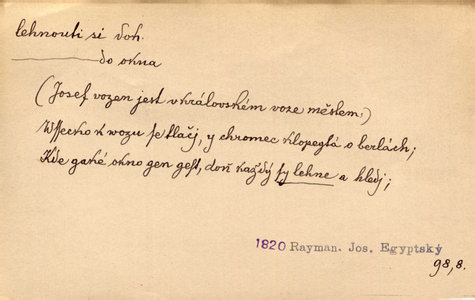 lehnouti si koh.
——— do okna
(Josef vozen jest v královském voze městem:)
Wssecko k wozu se tlačj, y chromec klopegtá o berlách;
Kde gaké okno gen gest, doň každý sy lehne a hledj;
1820 Rayman. Jos. Egyptský
98, 8.